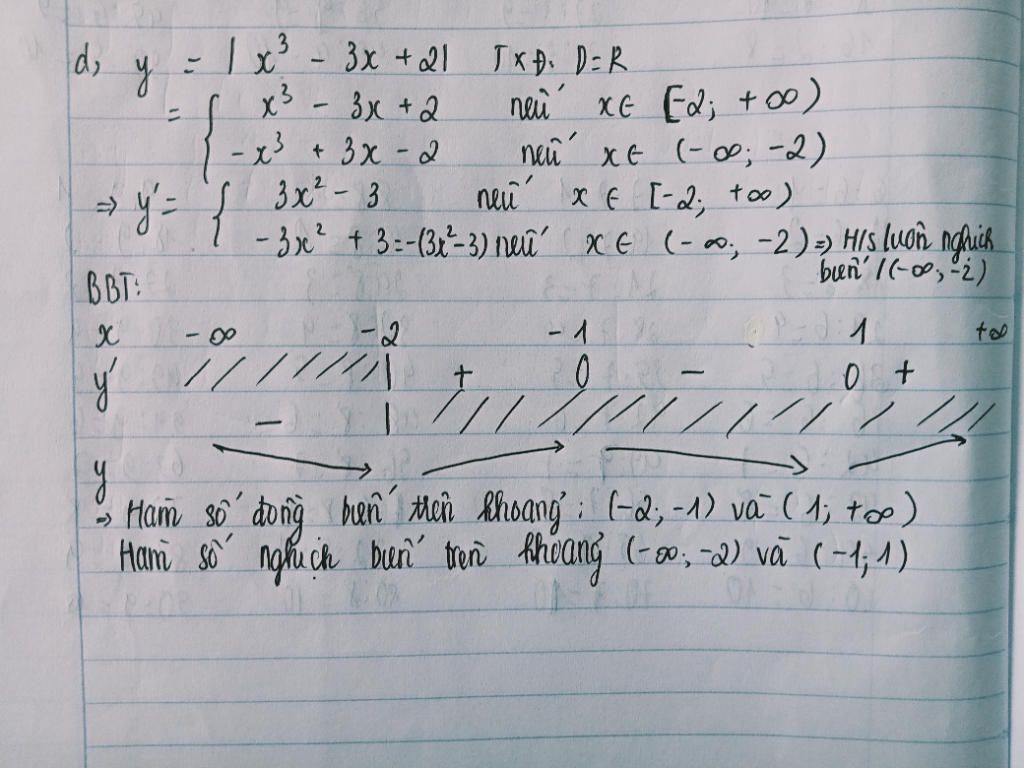 d, y = | x³ - 3x + 2| TXĐ: D=R
= { x³ - 3x + 2 nếu x ∈ [-2; +∞)
-x³ + 3x - 2 nếu x ∈ (-∞; -2)
⇒ y' = { 3x² - 3 nếu x ∈ [-2; +∞)
-3x² + 3 = -(3x²-3) nếu x ∈ (-∞; -2) ⇒ H/s luôn nghịch
biến / (-∞; -2)
BBT:
x -∞ -2 -1 1 +∞
y' | + 0 - 0 +
- |
y
⇒ Hàm số đồng biến trên khoảng : (-2; -1) và (1; +∞)
Hàm số nghịch biến trên khoảng (-∞; -2) và (-1; 1)